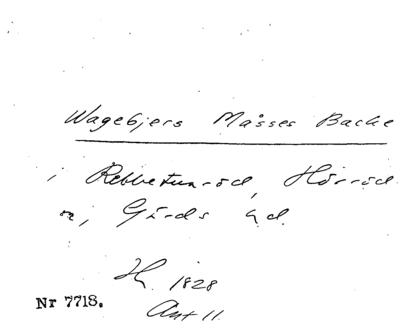 Wagebjers Måsses Backe
i Rebbetuaröd, Hörröd
n, Gärds hd.
H. 1828
Ant 11.
Nr 7718.